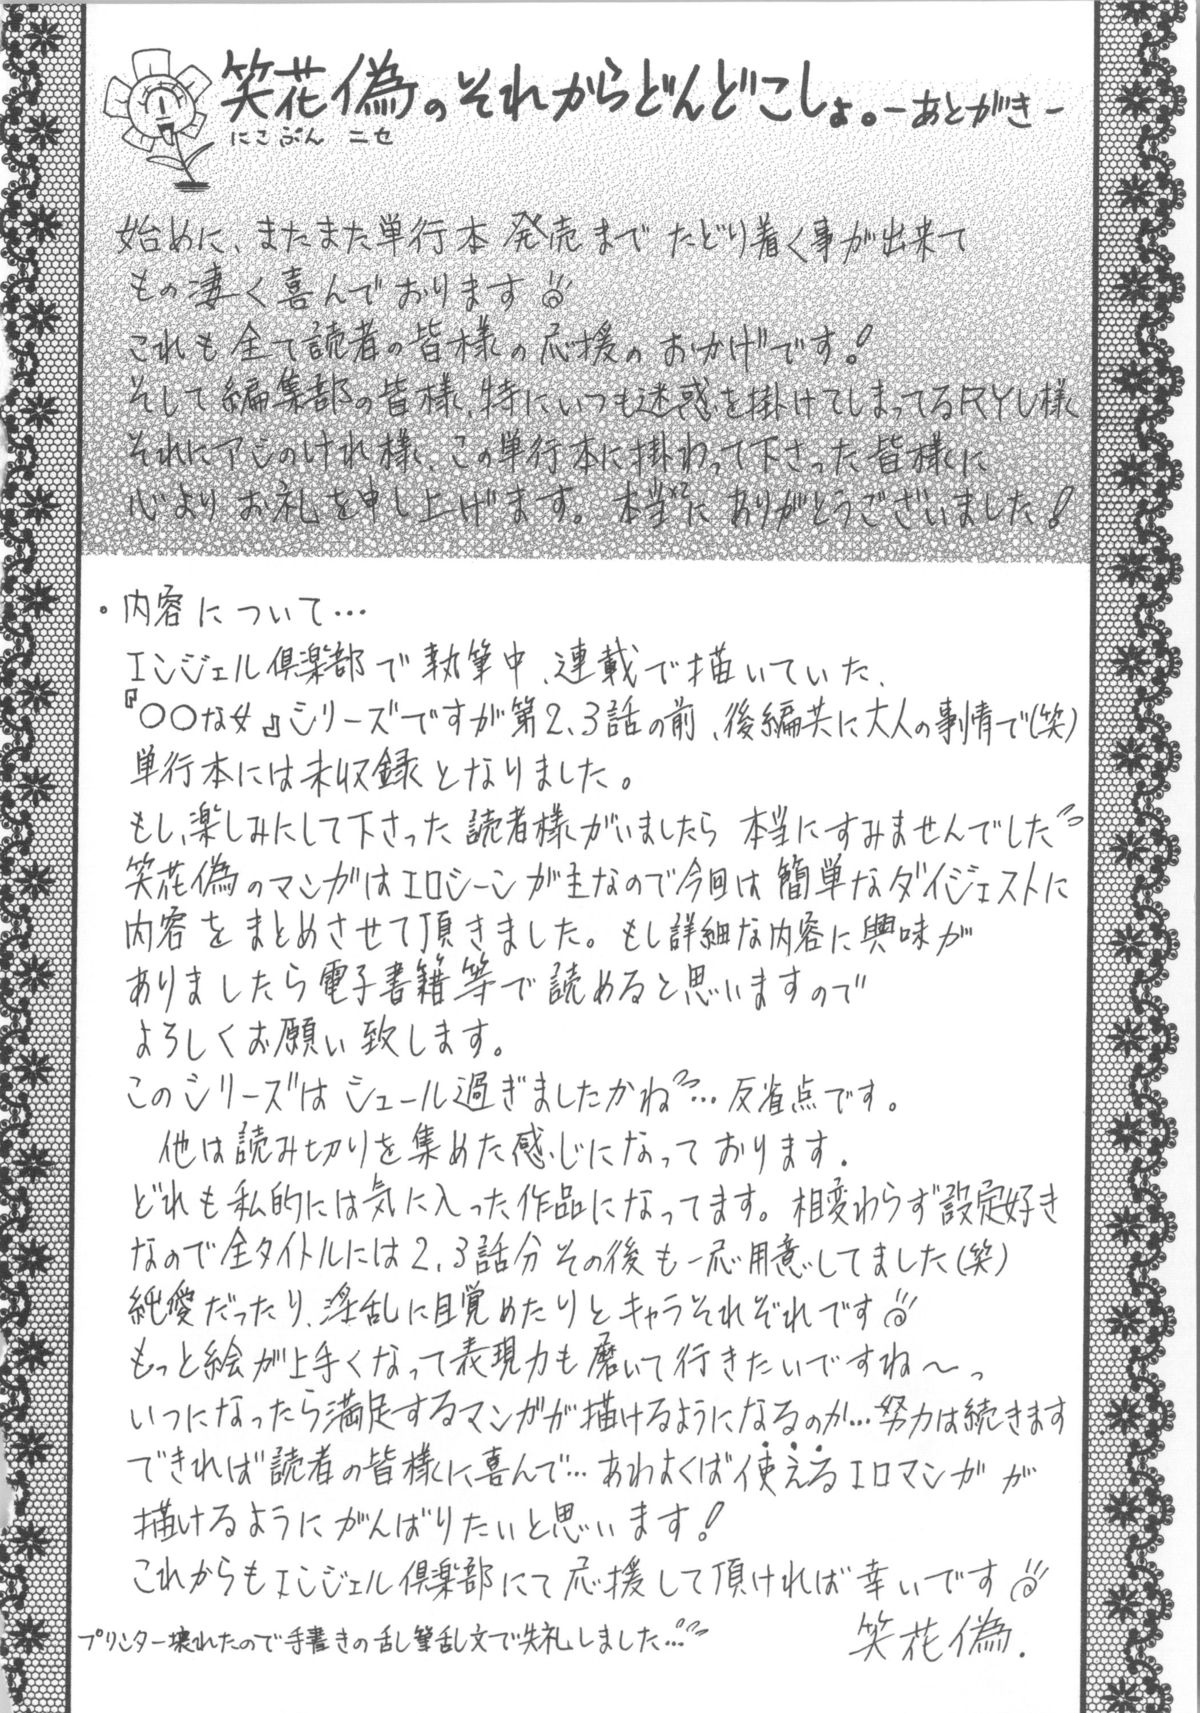 笑花偽のそれからどんどこしょ。－あとがき－
にこぷん ニセ
始めに、またまた単行本発売までたどり着く事が出来て
もの凄く喜んでおります
これも全て読者の皆様の応援のおかげです!
そして編集部の皆様、特にいつも迷惑を掛けてしまってるRYU様
それにアジのけれ様、この単行本に掛わって下さった皆様に
心よりお礼を申し上げます。本当に×2ありがとうございました!
・内容について…
エンジェル倶楽部で執筆中、連載で描いていた、
『〇〇な女』シリーズですが第2、3話の前、後編共に大人の事情で(笑)
単行本には未収録となりました。
もし、楽しみにして下さった読者様がいましたら本当にすみませんでした
笑花偽のマンガはエロシーンが主なので今回は簡単なダイジェストに
内容をまとめさせて頂きました。もし詳細な内容に興味が
ありましたら電子書籍等で読めると思いますので
よろしくお願い致します。
このシリーズはシュール過ぎましたかね…反省点です。
他は読み切りを集めた感じになっております.
どれも私的には気に入った作品になってます。相変わらず設定好き
なので全タイトルには2、3話分その後も一応用意してました(笑)
純愛だったり、淫乱に目覚めたりとキャラそれぞれです
もっと絵が上手くなって表現力も磨いて行きたいですね～っ
いつになったら満足するマンガが描けるようになるのか…努力は続きます
できれば読者の皆様に、喜んで…あわよくば使えるエロマンガが
描けるようにがんばりたいと思います!
これからもエンジェル倶楽部にて応援して頂ければ幸いです
プリンター壊れたので手書きの乱筆乱文で失礼しました…
笑花偽.